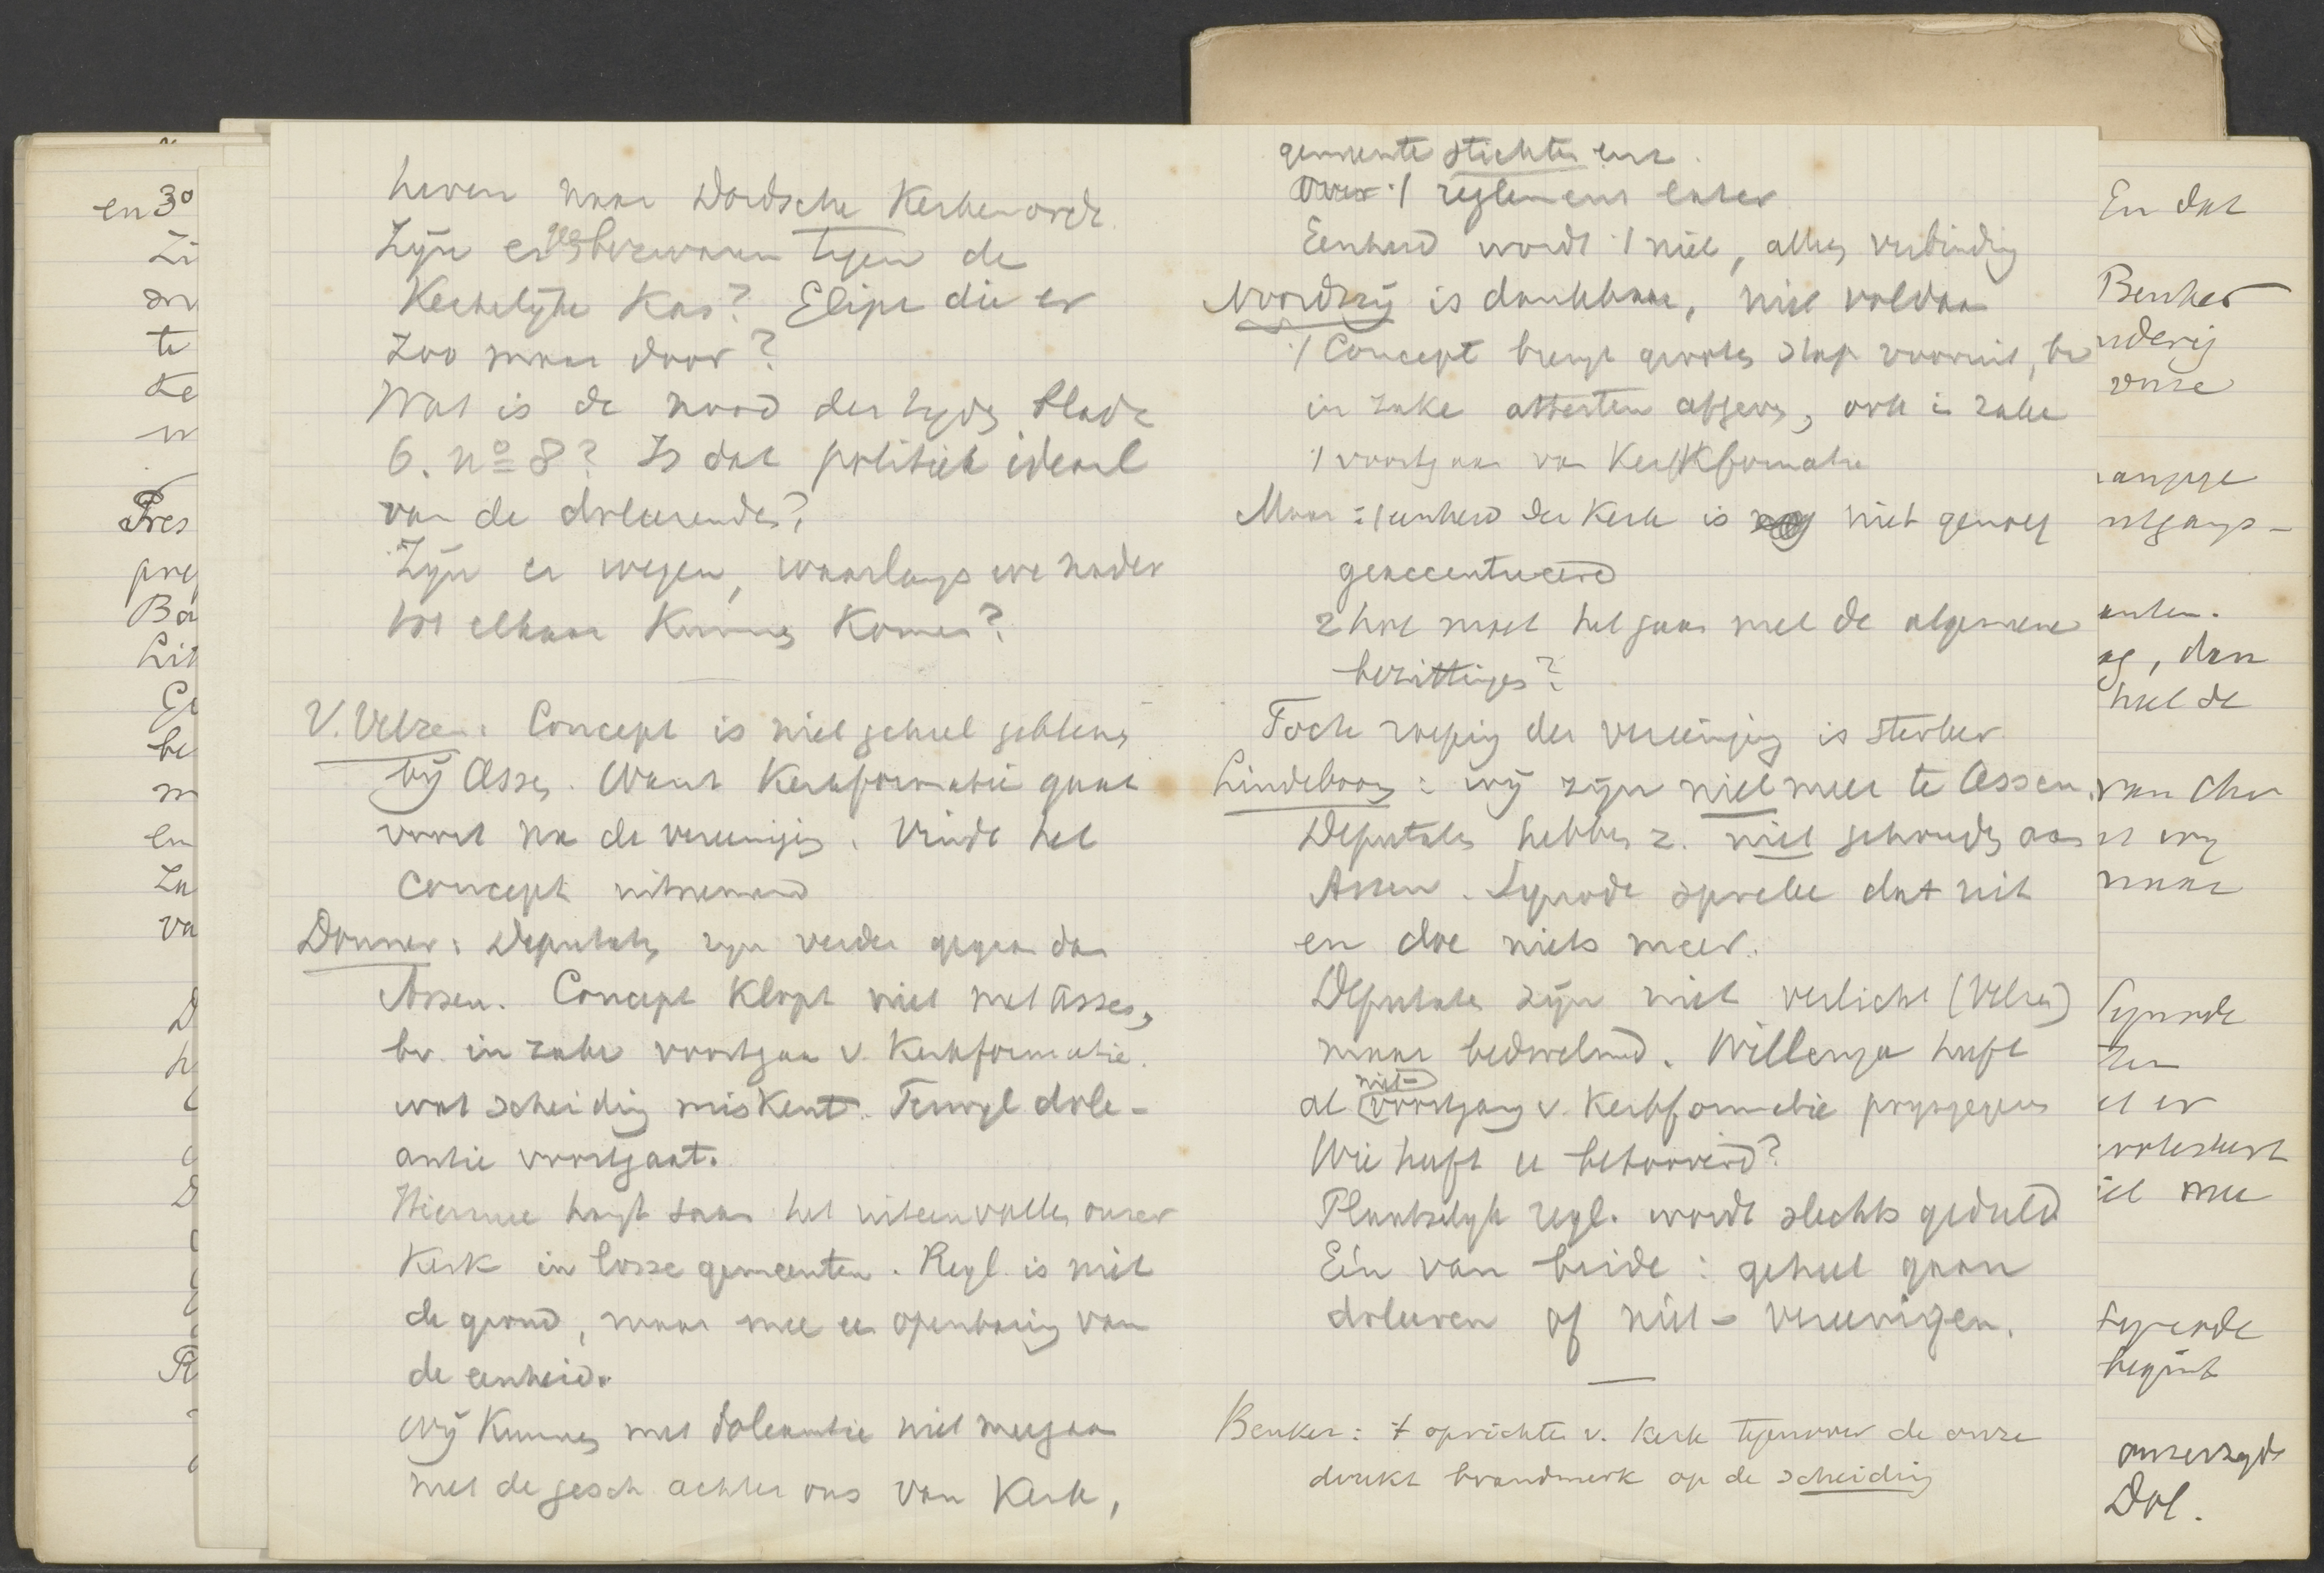 leven naar Dordsche Kerkenorde
Zijn er bezwaren tegen de
Kerkelijke Kas? Glipt die er
zoo maar door?
Wat is de nood der tijds
6. no 8? Is dat politiek ideaal
van de doleerenden?
Zijn er wegen, waarlangs we nader
tot elkaar kunnen komen?
V. Velzen: Concept is niet geheel gebleven
bij Assen. Want Kerkformatie gaat
voort na de vereeniging. Vindt het
concept uitnemend
Donner: Deputaten zijn verder gegaan dan
Assen. Concept klopt niet met Assen,
bv. in zake voortgaan v. Kerkformatie.
wat scheiding miskent. Terwijl dole-
antie voortgaat.
Hiermee hangt saam het uiteenvallen onzer
Kerk in losse gemeenten. Regl. is niet
de grond, maar mee een openbaring van
de eenheid.
Wij kunnen met doleantie niet meegaan
met de gesch achter ons van Kerk,
gemeente stichten enz.
:/ reglement enz
Eenheid wordt :/ niet, alleen verbinding
Noordzij is dankbaar, niet voldaan
:/ Concept brengt groote stap vooruit, bv
in zake attesten afgeven, ook in zake
:/ voortgaan van Kerkformatie
Maar :/ eenheid der Kerk is niet genoeg
geaccentueerd
2 hoe moet het gaan met de algemeene
bezittingen?
Toch roeping der vereeniging is sterker
Lindeboom: wij zijn niet meer te Assen.
Deputaten hebben z. niet gehouden aan
Assen. Synode spreke dat uit
en doe niets meer.
Deputaten zijn niet verlicht (Velzen)
maar bedwelmd. Willenga heeft
al niet-voortgang v. Kerkformatie prijsgegeven
Wie heeft u betooverd?
Plaatselijk regl. wordt slechts geduld
Eén van beide: geheel gaan
doleeren of niet-vereenigen.
Beuker: :/ oprichten v. Kerk tegenover de onze
drukt brandmerk op de scheiding
en 3o
Zi
on
te
Ke
Pres
preg
Ba
Lit
be
m
en
Za
va
D
h
D
R
En dat
Beuker
nderij
onze
ntgangs-
anten.
ag, dan
van Chr
maar
Synode
el er
mee
Synode
begint
Dol.